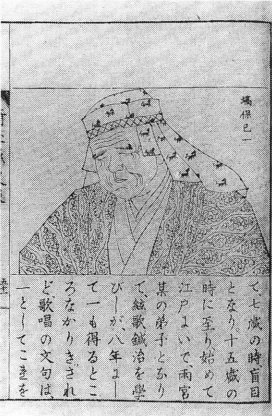 塙保己一
て、七歳の時盲目
となり十五歳の
時に至り始めて
江戸よいで雨富
某の弟子とかり
て、絃歌鍼治を學
びしが、八年よし
て一も得るとこ
ろなかりきされ
ど歌唱の文句は、
一としてこ𛀁を